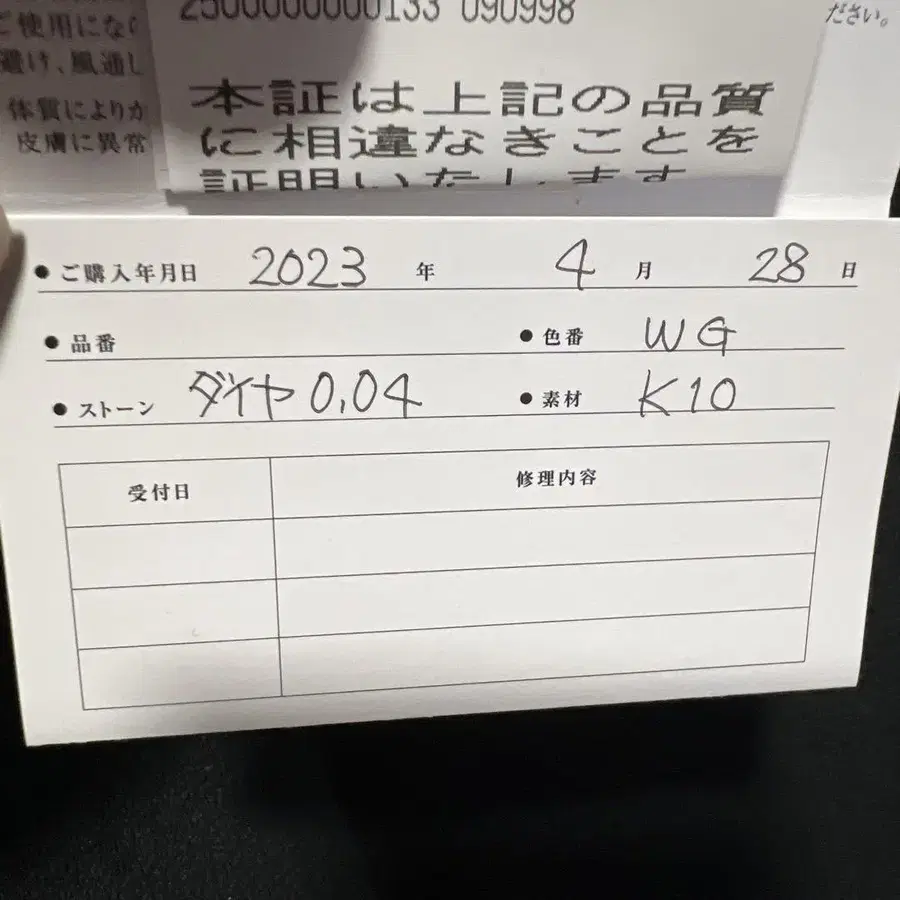 2500000000133 090998
ださい。
ご使用になら
避け、風通し
体質によりか
皮膚に異常
本証は上記の品質
に相違なきことを
証明いたします
●ご購入年月日 2023 年 4 月 28 日
●品番 ●色番 WG
●ストーン ダイヤ0.04 ●素材 K10
受付日 修理内容